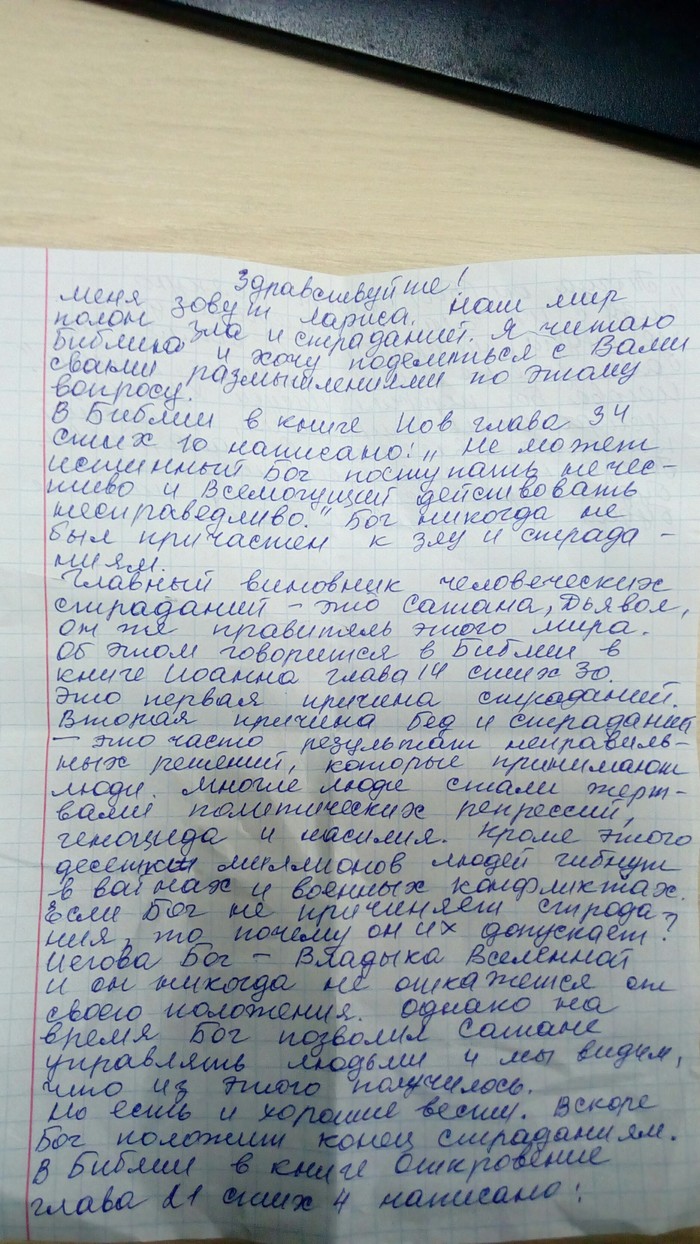 Здравствуйте!
меня зовут Лариса. Наш мир
полон зла и страданий. Я читаю
Библию и хочу поделиться с Вами
своими размышлениями по этому
вопросу.
В Библии в книге Иов глава 34
стих 10 написано: „Не может
истинный Бог поступать нечес-
тиво и Всемогущий действовать
несправедливо." Бог никогда не
был причастен к злу и страда-
ниям.
Главный виновник человеческих
страданий - это Сатана, Дьявол,
он же правитель этого мира.
Об этом говорится в Библии в
книге Иоанна глава 14 стих 30.
Это первая причина страданий.
Вторая причина бед и страданий
- это часто результат неправиль-
ных решений, которые принимают
люди. Многие люди стали жерт-
вами политических репрессий,
геноцида и насилия. Кроме этого
десетки миллионов людей гибнут
в войнах и военных конфликтах.
Если Бог не причиняет строда-
ния, то почему он их допускает?
Иегова Бог - Владыка Вселенной
и он никогда не откажется от
своего положения. Однако на
время Бог позволил Сатане
управлять людьми и мы видим,
что из этого получилось.
Но есть и хорошие вести. Вскоре
Бог положит конец страданиям.
В Библии в книге Откровение
глава 21 стих 4 написано: